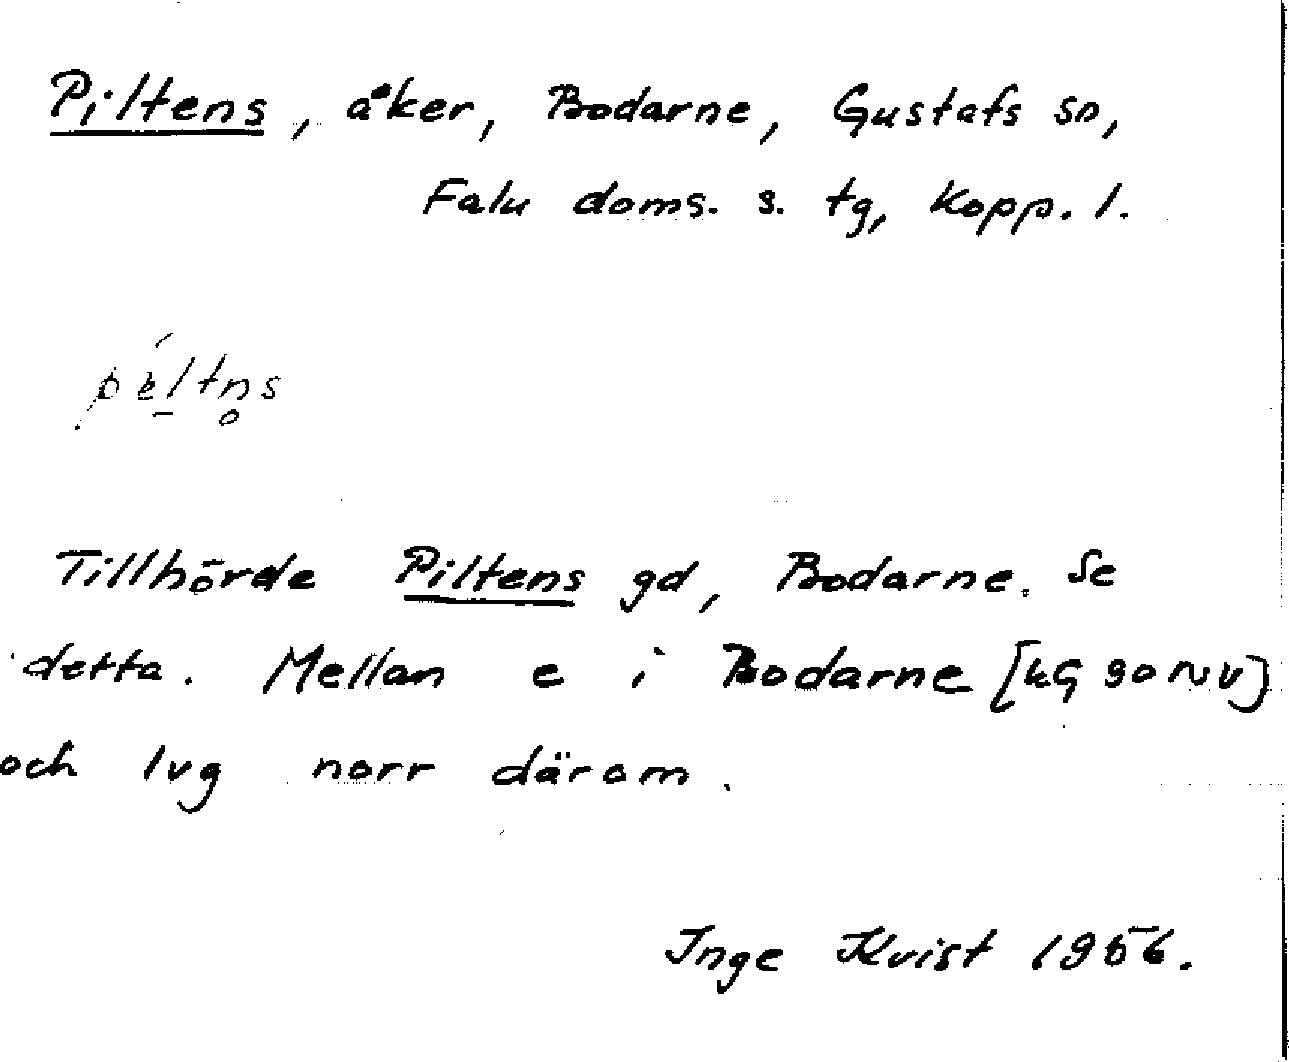 Piltens, åker, Bodarne, Gustafs sn,
Falu doms. s. tg, Kopp. l.
Tillhörde Piltens gd, Bodarne. Se
detta. Mellan e i Bodarne [kG 90 NV]
och lvg norr därom.
Inge Kvist 1956.